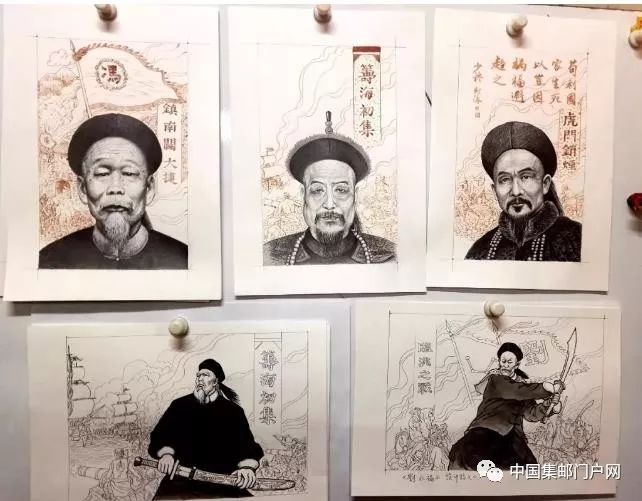 馮
鎮南關大捷
籌海初集
苟利國
家生死
以豈因
禍福避
趨之
少穆
虎門銷煙
籌海初集
臨洮之戰
劉永福
中国集邮门户网